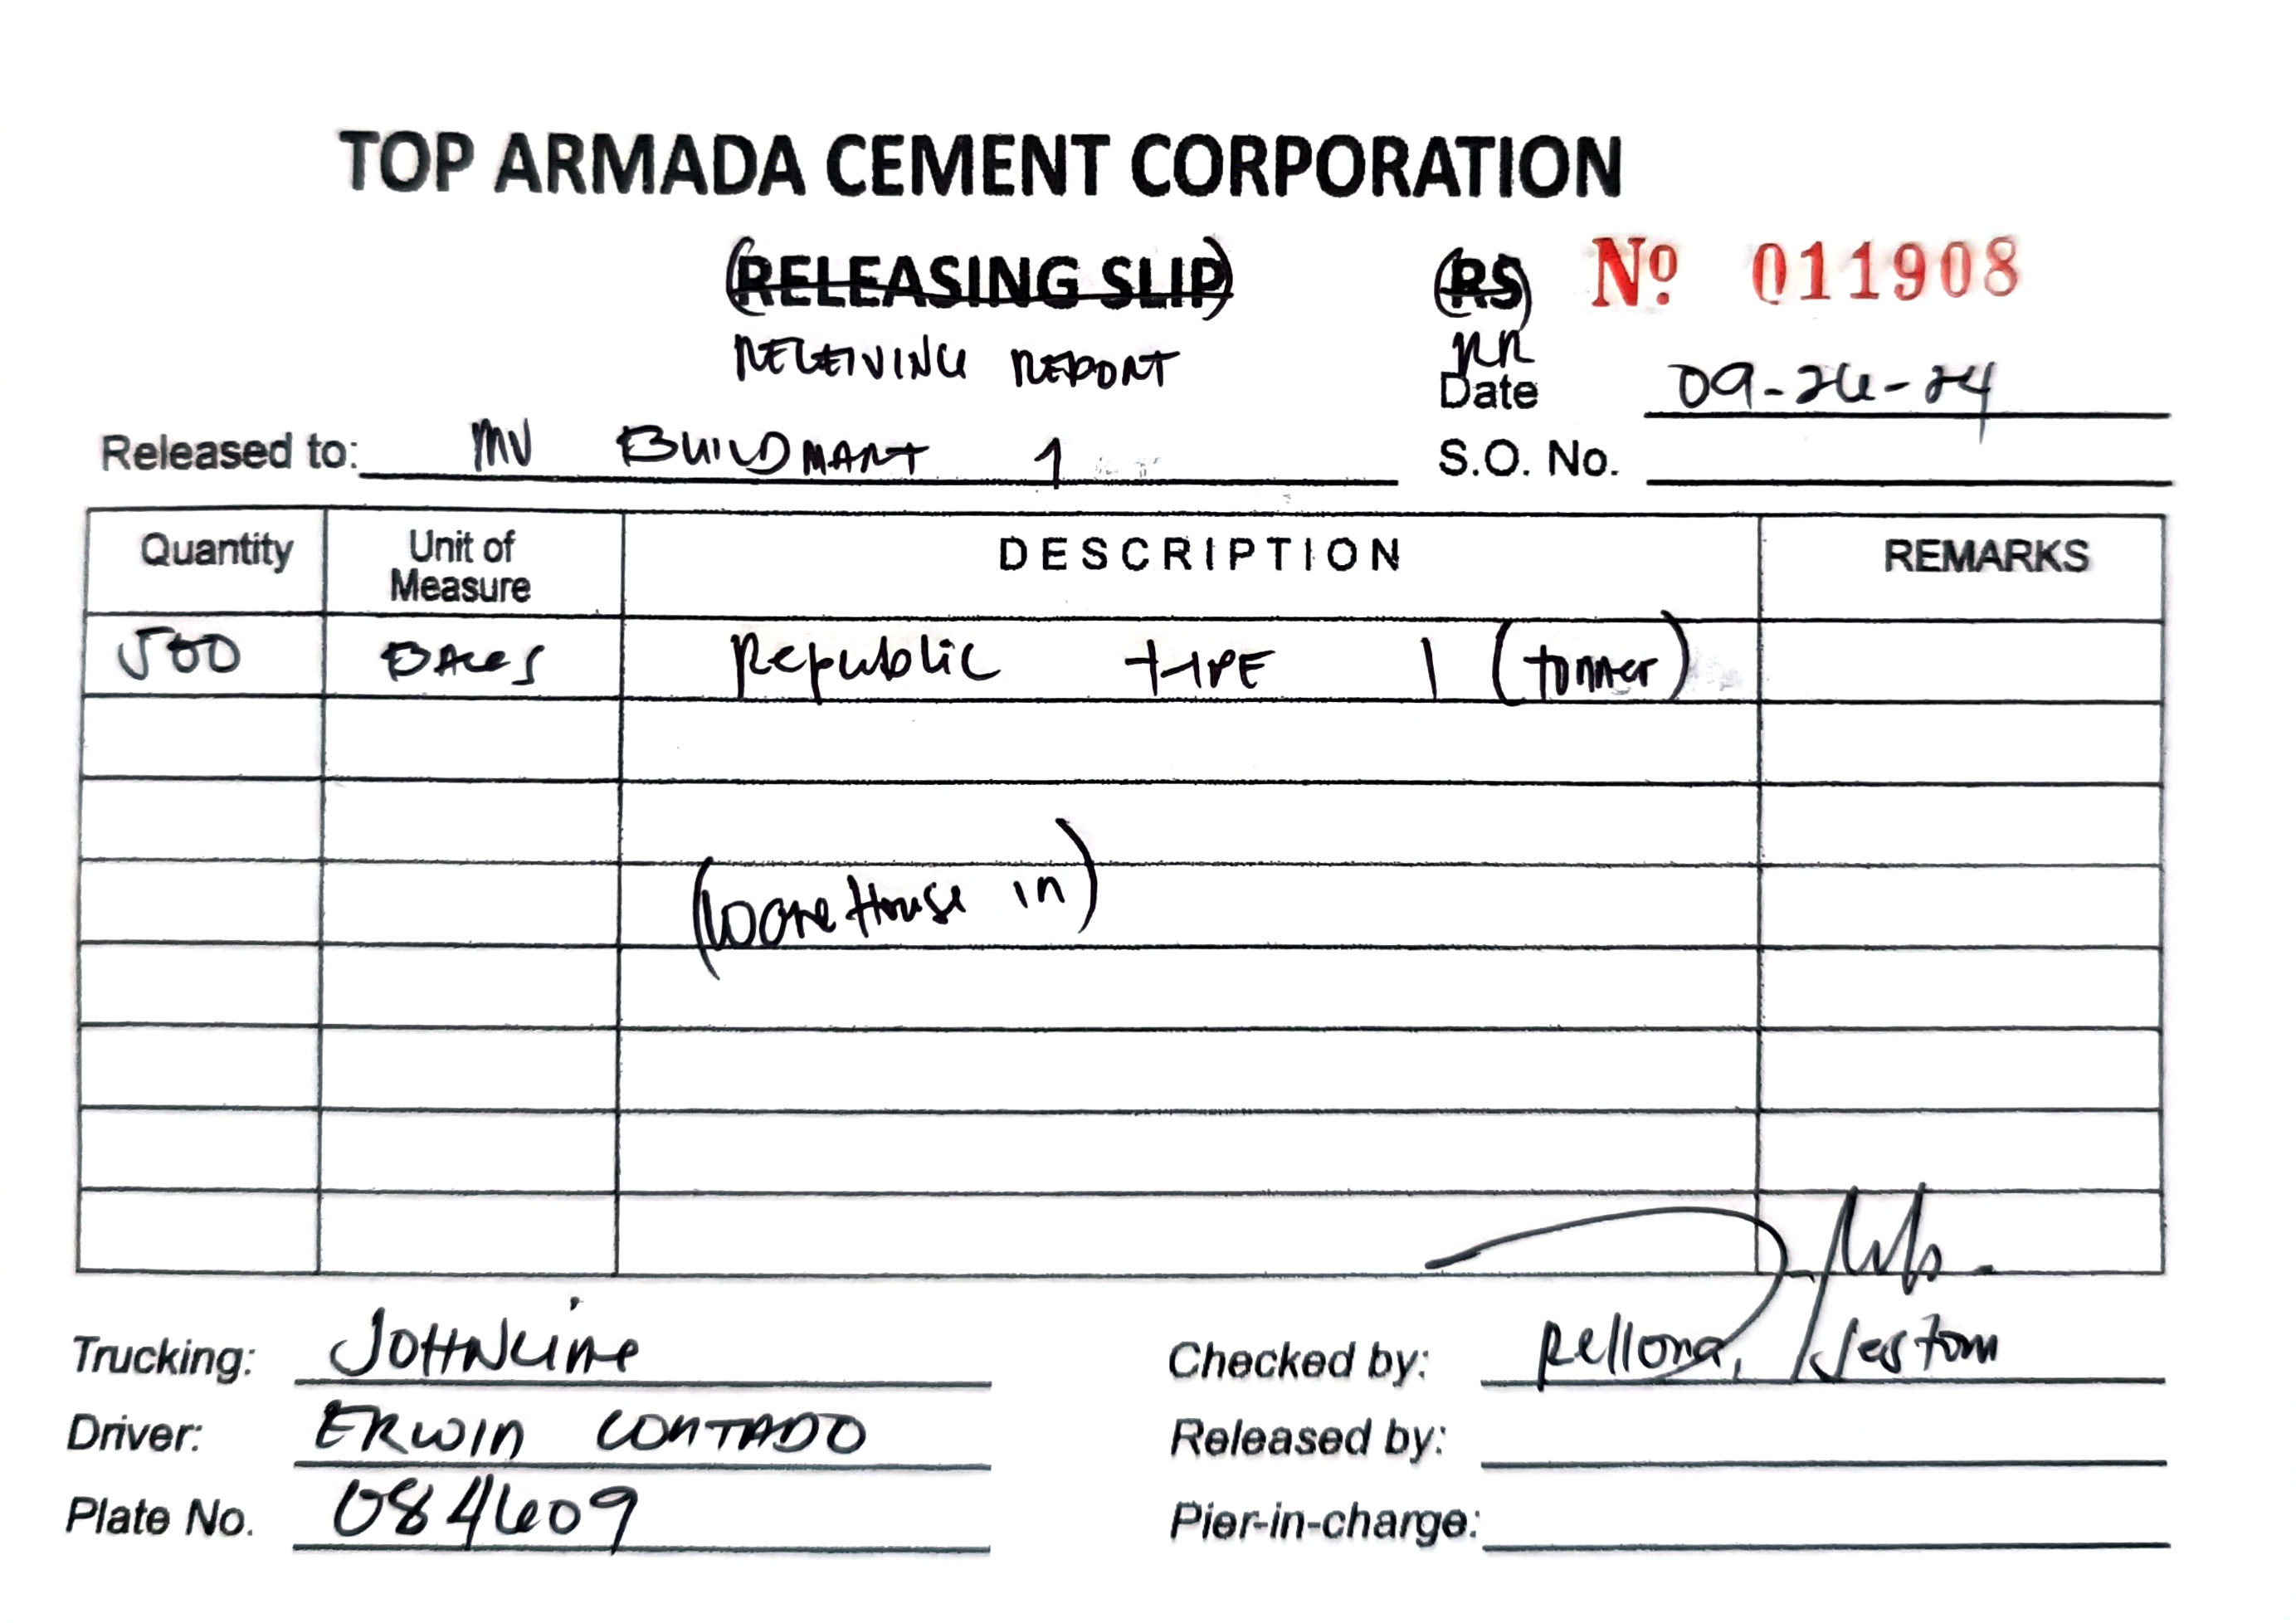 TOP ARMADA CEMENT CORPORATION
(RELEASING SLIP) (RS) Nº 011908
RECEIVING REPORT RR
Date 09-26-24
Released to: MV BUILDMART 1 S.O. No.
Quantity Unit of Measure DESCRIPTION REMARKS
500 BAGS Republic TYPE 1 (tonner)
(WareHouse in)
Trucking: JOHNLINE Checked by: Rellona, Jestom
Driver: ERWIN CONTADO Released by:
Plate No. 084609 Pier-in-charge: